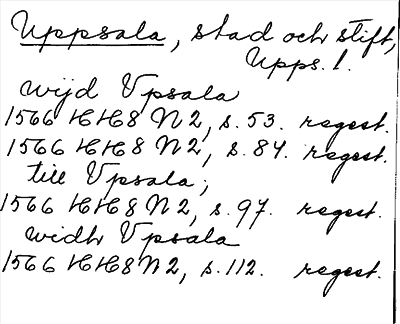 Uppsala, stad och stift,
Upps. l.
wijd Vpsala
1566 HH8 N2, s. 53. regest.
1566 HH8 N2, s. 84. regest.
till Vpsala;
1566 HH8 N2, s. 97. regest.
widh Vpsala
1566 HH8 N2, s. 112. regest.